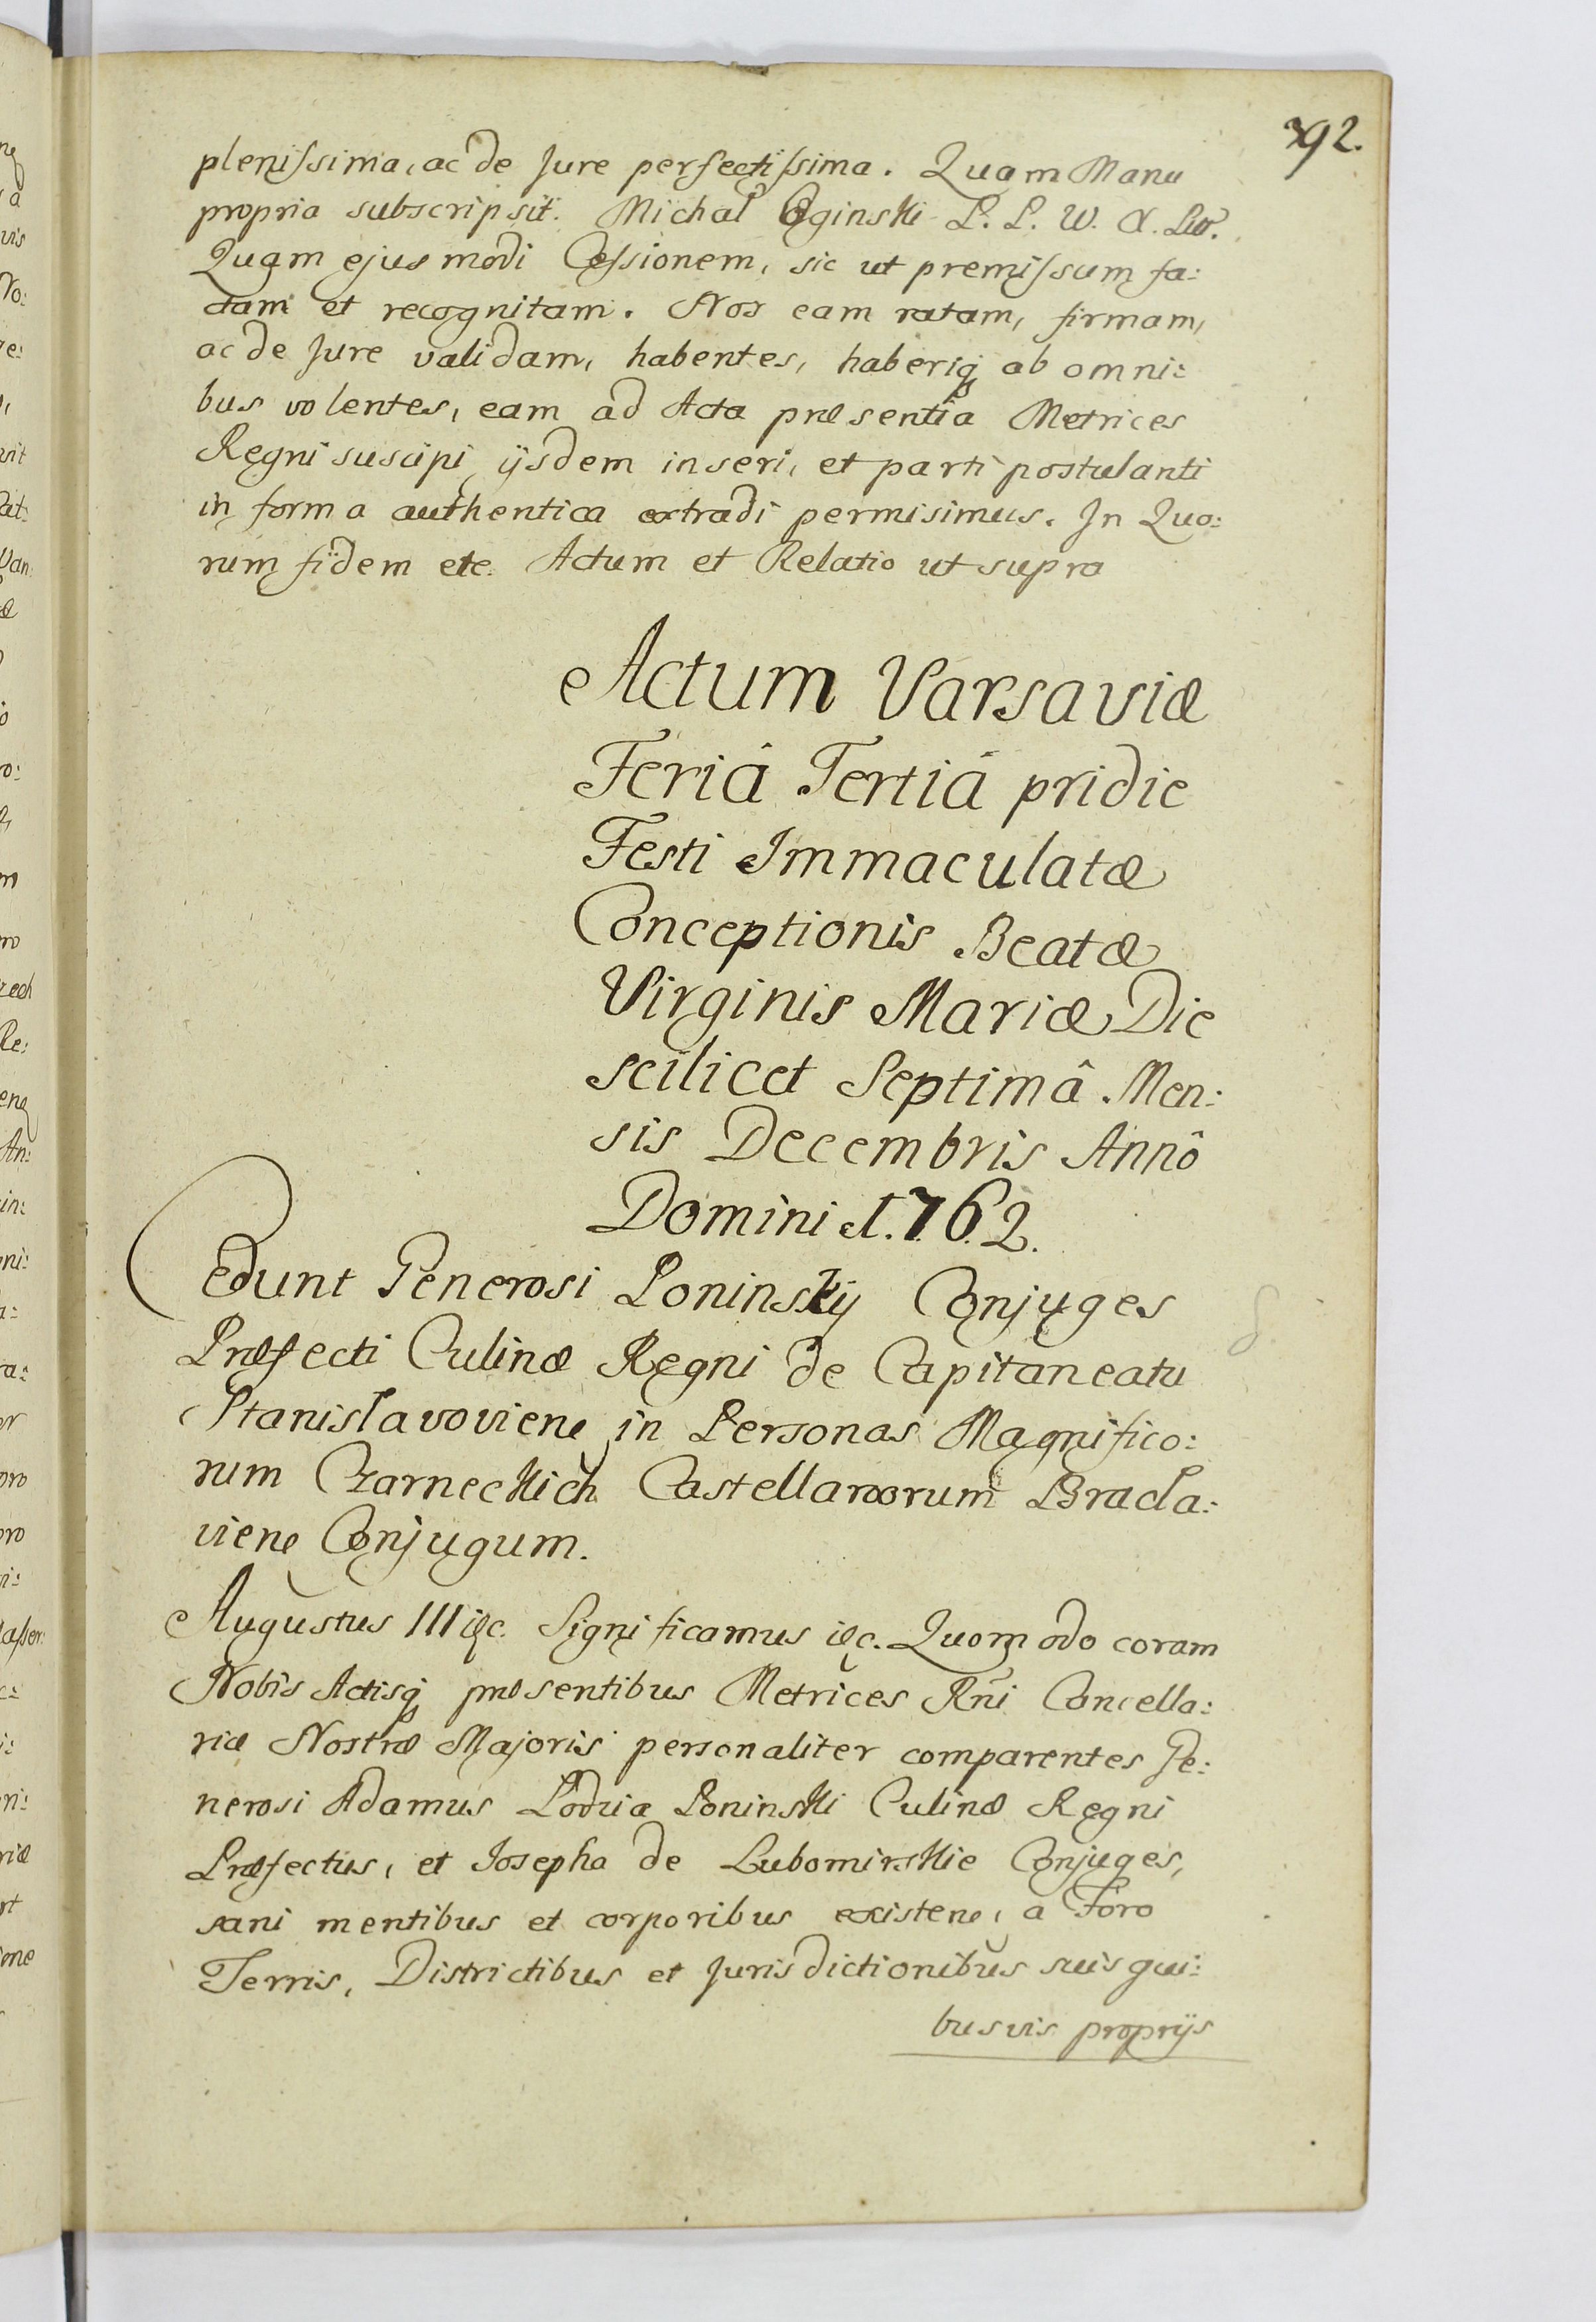 392.
plenissima, ac de Jure perfectissima. Quam Manu
propria subscripsit. Michał Oginski P. P. W. X. Lit.
Quam ejusmodi Cessionem, sic ut premissum fa:
ctam et recognitam. Nos eam ratam, firmam,
ac de Jure validam, habentes, haberiq, ab omni:
bus volentes, eam ad Acta præsentia Metrices
Regni suscipi ijsdem inseri, et parti postulanti
in forma authentica extradi permisimus. In Quo:
rum fidem etc. Actum et Relatio ut supra
Actum Varsaviæ
Feriâ Tertiâ pridie
Festi Immaculatæ
Conceptionis Beatæ
Virginis Mariæ Die
scilicet Septimâ Men:
sis Decembris Annô
Domini 1.7.6.2.
Cedunt Generosi Poninskij Conjuges
Præfecti Culinæ Regni de Capitaneatu
Stanislavovien in Personas Magnifico:
rum Czarneckich Castellanorum Bracla:
vien Conjugum.
Augustus III etc. Significamus etc. Quomodo coram
Nobis Actisq præsentibus Metrices Rñi Cancella:
riæ Nostræ Majoris personaliter comparentes Ge:
nerosi Adamus Łodzia Poninski Culinæ Regni
Præfectus, et Josepha de Lubomirskie Conjuges,
sani mentibus et corporibus existen, a Foro
Terris, Districtibus et Jurisdictionibus suis qui:
busvis proprijs